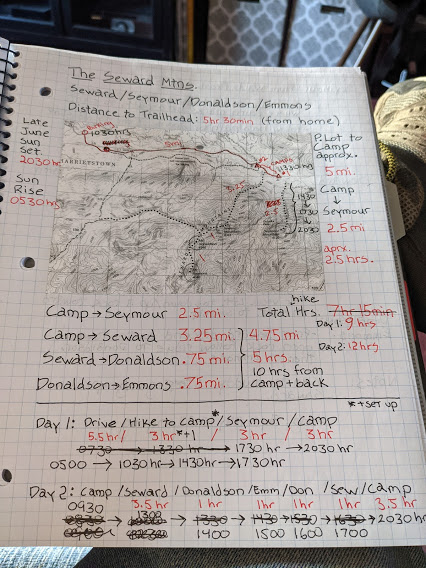 The Seward Mtns.
Seward/Seymour/Donaldson/Emmons
Distance to Trailhead: 5hr 30min (from home)
Late
June
Sun
Set
2030hrs
Sun
Rise
0530hrs
Parking
1030hrs
HARRIETSTOWN
5mi
Camp
1330hrs
3.25
1430
1730
2030
P.Lot to
Camp
approx.
5 mi.
Camp
↓
Seymour
2.5 mi
aprx.
2.5 hrs.
Camp → Seymour 2.5 mi.
Camp → Seward 3.25 mi.
Seward → Donaldson .75 mi.
Donaldson → Emmons .75 mi.
4.75 mi.
5 hrs.
10 hrs from
camp + back
hike
Total Hrs. 7hr 15min
Day 1: 9 hrs
Day 2: 12hrs
* + set up
Day 1: Drive/Hike to Camp*/Seymour/Camp
5.5hr/ 3 hr*+1 / 3hr / 3hr
0730 → 1330 hr → 1730 hr → 2030hr
0500 → 1030hr → 1430hr → 1730hr
Day 2: Camp /Seward /Donaldson /Emm/Don /Sew/Camp
0930 3.5hr 1hr 1hr 1hr 1hr 3.5 hr
1300 → 1330 → 1430 → 1530 → 1630 → 2030 hr
1400 1500 1600 1700